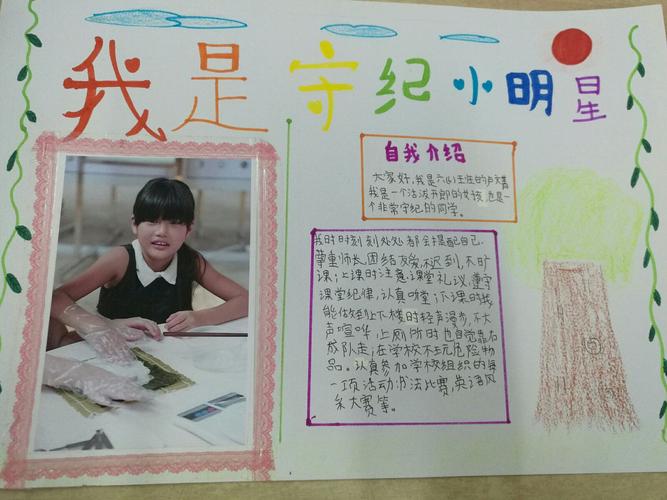 我是守纪小明星
自我介绍
大家好,我是六(4)班的卢
我是一个活泼开朗的女孩,也是一
个非常守纪的同学。
我时时刻刻处处都会提配自己.
尊重师长,团结友爱,不迟到,不旷
课;上课时注意课堂礼议,遵守
课堂纪律,认真听堂;下课的我
能做到上下楼时轻声漫步,不大
声喧哗,上厕所时也自觉靠右
成队走;在学校不玩危险物
品。认真参加学校组织的每
一项活动:书法比赛,英语风
采大赛等。